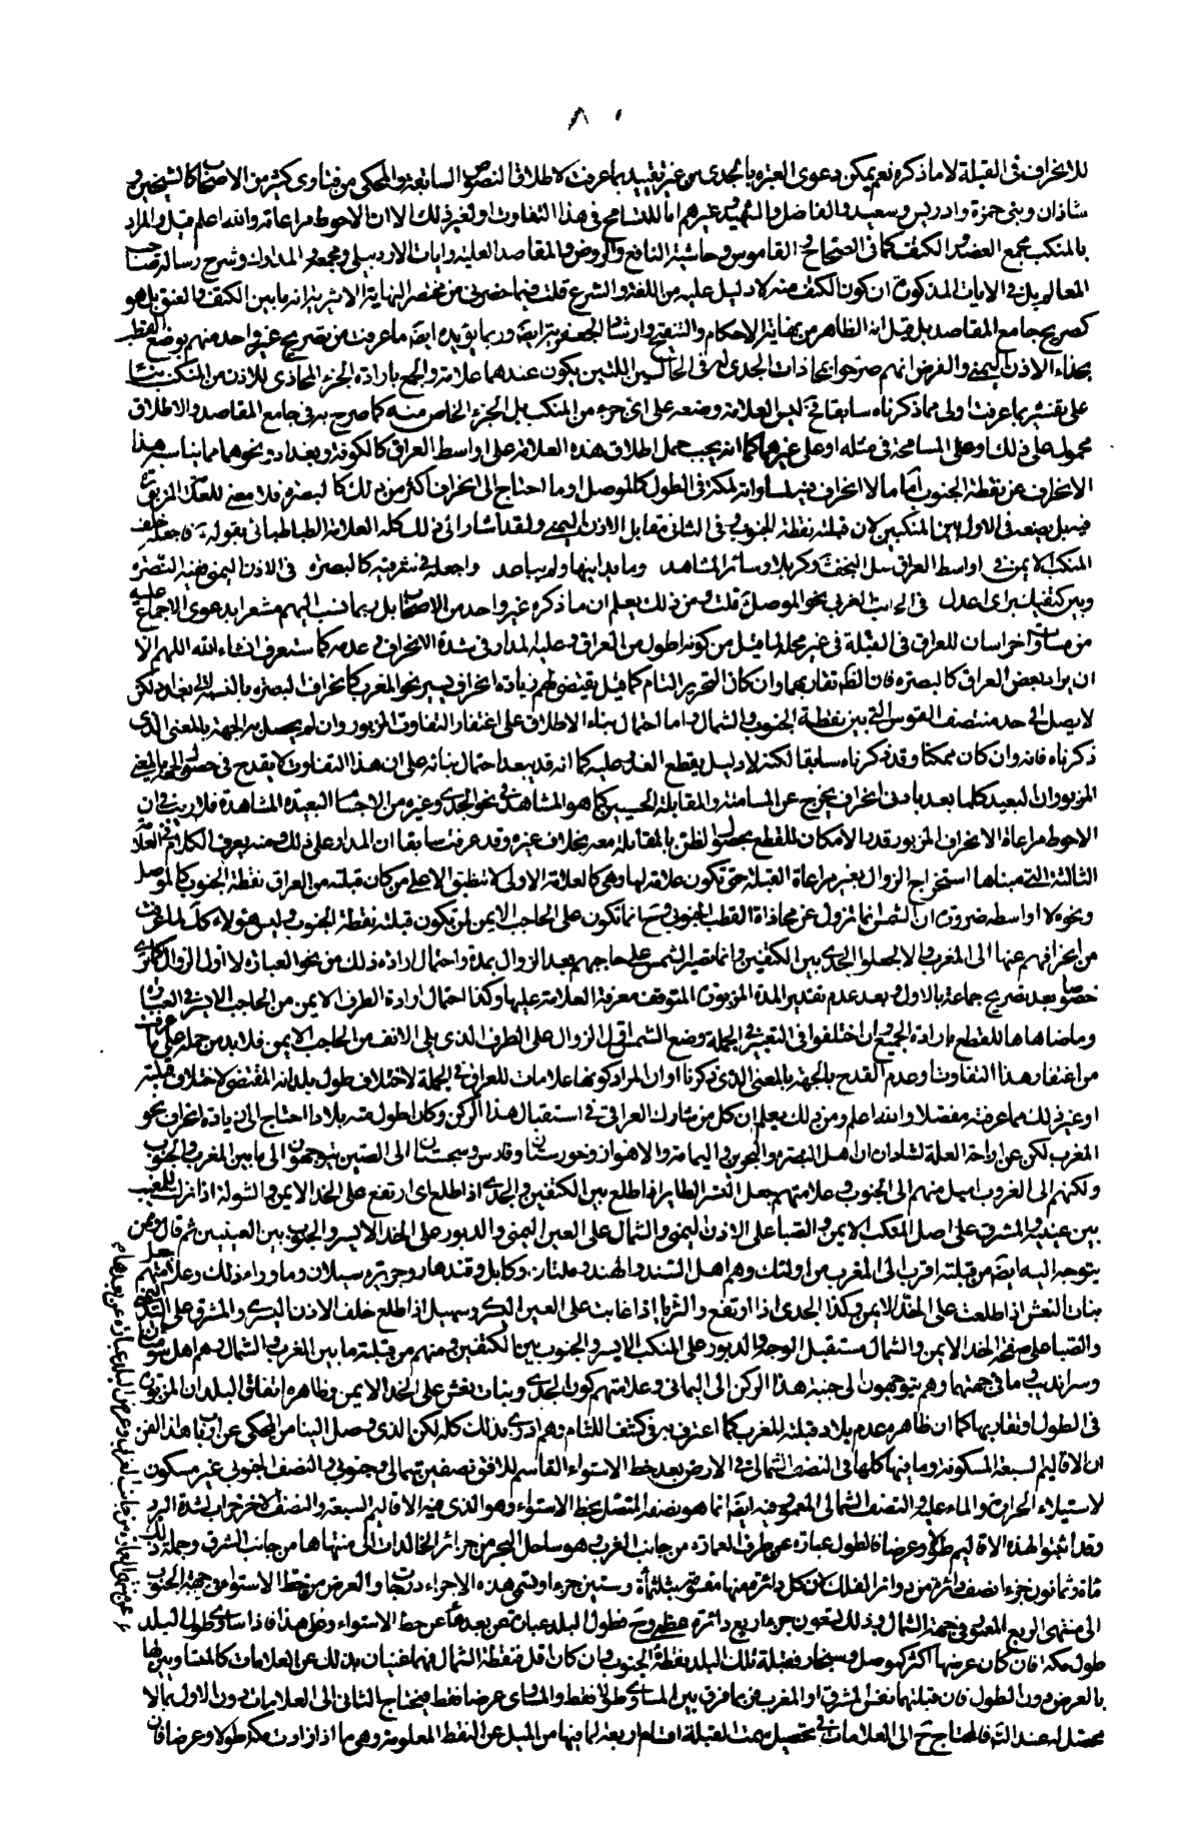 ٨٠
للانحراف فى القبلة لا ما ذكره نعم يمكن دعوى العبرة بالجدى من غير تقييد بما عرفت لاطلاق النصوص السابقة والمحكى من فتاوى كثير من الاصحاب كالشيخين و
شاذان وبنى حمزة وادريس وسعيد والفاضل والشهيد وغيرهم اما للتسامح فى هذا التفاوت او لغير ذلك الا ان الاحوط مراعاته والله اعلم قيل والمراد
بالمنكب مجمع العضد والكتف كما فى الصحاح والقاموس وحاشية النافع والروض والمقاصد العلية وايات الاردبيلى ومجمعه والمدارك وشرح رسالة صاحب
المعالم بل فى الايات المذكورة ان كون الكتف منه لا دليل عليه من اللغة والشرع قلت فيما حضرنى من مختصر النهاية الاثيرية انه ما بين الكتف والعنق بل هو
كصريح جامع المقاصد بل قيل انه الظاهر من نهاية الاحكام والتنقيح وارشاد الجعفرية ايضا وربما يؤيده ايضا ما عرفت من تصريح غير واحد منهم بوضع القطب
بحذاء الاذن اليمنى والفرض انهم صرحوا بمحاذات الجدى له فى الحالتين اللتين يكون عندهما علامة والجمع بارادة الجزء المحاذى للاذن من المنكب بناء
على تفسيره بما عرفت اولى مما ذكرناه سابقا فى ليس العلامة وضعه على اى جزء من المنكب بل الجزء الخاص منه كما صرح به فى جامع المقاصد والاطلاق
محمول على ذلك او على المسامحة فى مثله او على غيرهما كما انه يجب حمل اطلاق هذه العلامة على اواسط العراق كالكوفة وبغداد ونحوهما مما يناسبه هذا
الانحراف عن نقطة الجنوب اما ما لا انحراف فيه لمساواته لمكة فى الطول كالموصل او ما احتاج الى انحراف اكثر من ذلك كالبصرة فلا معنى للعلامة المزبورة
فيه بل يضعه فى الاول بين المنكبين لان قبلته نقطة الجنوب وفى الثانى مقابل الاذن اليمنى ولقد اشار الى ذلك كله العلامة الطباطبائى بقوله فاجعله خلف
المنكب الايمن فى اواسط العراق مثل النجف وكربلا وسائر المشاهد وما يدانيها ولم يباعد واجعله فى شرقيه كالبصرة فى الاذن اليمنى ففيه التبصرة
وبين كتفيك براى اعدل فى الجانب الغربى نحو الموصل قلت ومن ذلك يعلم ان ما ذكره غير واحد من الاصحاب بل ربما نسب اليهم مشعرا بدعوى الاجماع عليه
من مساواة خراسان للعراق فى القبلة فى غير محله لما قيل من كونه اطول من العراق وعليه المدار فى شدة الانحراف وعدمه كما ستعرف انشاء الله اللهم الا
ان يراد بعض العراق كالبصرة فان الظاهر تقاربهما وان كان التحرير التام كما قيل يقتضى لهم زيادة انحراف يسير نحو المغرب كانحراف البصرة بالنسبة الى بغداد لكن
لا يصل الى حد منتصف القوس التى بين نقطة الجنوب والشمال واما احتمال بناء الاطلاق على اغتفار التفاوت المزبور وان لم يحصل به الجهة بالمعنى الذى
ذكرناه فانه وان كان ممكنا وقد ذكرناه سابقا لكنه لا دليل يقطع العذر عليه كما انه قد يبعد احتمال بنائه على ان هذا التفاوت لا يقدح فى حصول الجهة بالمعنى
المزبور اذ البعيد كلما بعد بادنى انحراف يخرج عن المسامتة والمقابلة الحسية كما هو المشاهد فى نحو الجدى وغيره من الاجسام البعيدة المشاهدة فلا ريب فى ان
الاحوط مراعاة الانحراف المزبور قدر الامكان للقطع بحصول الظن بالمقابلة معه بخلاف غيره وقد عرفت سابقا ان المدار على ذلك ومنه يعرف الكلام فى العلامة
الثالثة التى مبناها استخراج الزوال بغير مراعاة القبلة حتى تكون علامة لها وهى كالعلامة الاولى لا تنطبق الا على من كان قبلته من العراق نقطة الجنوب كالموصل
ونحوه لا اواسطه ضرورة ان الشمس انما تزول عن محاذاة القطب الجنوبى وح انما تكون على الحاجب الايمن لمن تكون قبلته نقطة الجنوب وليس هؤلاء كذلك لما عرفت
من انحرافهم عنها الى المغرب والا لجعلوا الجدى بين الكتفين وانما تصير الشمس على حاجبهم بعد الزوال بمدة واحتمال ارادة ذلك من نحو العبارة لا اول الزوال كما ترى
خصوصا بعد تصريح جماعة بالاول وبعد عدم تقدير المدة المزبورة المتوقف معرفة العلامة عليها وكذا احتمال ارادة الطرف الايمن من الحاجب الايمن فى العبارة
وما ضاهاها للقطع بارادة الجميع وان اختلفوا فى التعبير فى الجملة وضع الشمس اول الزوال على الطرف الذى يلى الانف من الحاجب الايمن فلا بد من حمله على ما عرفت
من اغتفار هذا التفاوت وعدم القدح بالجهة بالمعنى الذى ذكرنا او ان المراد كونها علامات للعراق فى الجملة لاختلاف طول بلدانه المقتضى لاختلاف قبلته
او غير ذلك مما عرفته مفصلا والله اعلم ومن ذلك يعلم ان كل من شارك العراقى فى استقبال هذا الركن وكان اطول منه بلادا احتاج الى زيادة انحراف نحو
المغرب لكن عن ازاحة العلة لشاذان ان اهل البصرة والبحرين واليمامة والاهواز وخوزستان وفارس وسجستان الى الصين يتوجهون الى ما بين المغرب والجنوب
ولكنهم الى الغروب اميل منهم الى الجنوب وعلامتهم جعل النسر الطاير اذا طلع بين الكتفين والجدى اذا طلع اى ارتفع على الخد الايمن والشولة اذا نزلت للمغيب
بين عينيه والمشرق على اصل المنكب الايمن والصبا على الاذن اليمنى والشمال على العين اليمنى والدبور على الخد الايسر والجنوب بين العينين ثم قال وممن
يتوجه اليه ايضا من قبلته اقرب الى المغرب من اولئك وهم اهل السند والهند وملتان وكابل وقندهار وجزيرة سيلان وما وراء ذلك وعلامتهم جعل
بنات النعش اذا طلعت على الخد الايمن وكذا الجدى اذا ارتفع والثريا اذا غابت على العين اليسرى وسهيل اذا طلع خلف الاذن اليسرى والمشرق على اليد اليمنى
والصبا على صفحة الخد الايمن والشمال مستقبل الوجه والدبور على المنكب الايسر والجنوب بين الكتفين ومنهم من قبلته ما بين المغرب والشمال وهم اهل
وسرانديب وما فى جهتهما وهم يتوجهون الى جنبة هذا الركن الى اليمانى وعلامتهم كون الجدى وبنات نعش على الخد الايمن وظاهره اتفاق البلدان المزبورة
فى الطول او تقاربها كما ان ظاهره عدم بلاد قبلته للمغرب كما اعترف به فى كشف اللثام وهم ادرى بذلك كله لكن الذى وصل الينا من المحكى عن ارباب هذا الفن
ان الاقاليم السبعة المسكونة وما فيها كلها فى النصف الشمالى فى الارض بعد خط الاستواء القاسم للافق نصفين شمالى وجنوبى والنصف الجنوبى غير مسكون
لاستيلاء الحرارة والماء عليه والنصف الشمالى المعمور فيه ايضا انما هو نصفه المتصل بخط الاستواء وهو الذى فيه الاقاليم السبعة والنصف الاخر خراب لشدة البرد
وقد اثبتوا لهذه الاقاليم طولا وعرضا فالطول عبارة عن طرف العمارة من جانب الغرب وهو ساحل البحر من جزائر الخالدات الى منتهاها من جانب الشرق وجملة ذلك
مائة وثمانون جزءا نصف دائرة من دوائر الفلك لان كل دائرة منها مقسومة بثلثمأة وستين جزءا وتسمى هذه الاجزاء درجات والعرض من خط الاستواء من جهة الجنوب
الى منتهى الربع المعمور فى جهة الشمال وذلك تسعون جزءا ربع دائرة فطول البلد عبارة عن بعدها عن خط الاستواء وعلى هذا فاذا ساوى طول البلد
طول مكة فان كان عرضها اكثر كموصل وسنجار فقبلة تلك البلد نقطة الجنوب وان كان اقل فنقطة الشمال فهما غنيان بذلك عن العلامات كالمتساويين لها
بالعرض دون الطول فان قبلتهما نفس المشرق او المغرب فربما فرق بين المساوى طولا فقط والمساوى عرضا فقط فيحتاج الثانى الى العلامات دون الاول بما لا
محصل له عند التامل فالمحتاج ح الى العلامات فى تحصيل سمت القبلة اقسام اربعة لما فيها من الميل عن النقط المعلومة وهى ما اذا زادت مكة طولا وعرضا فان